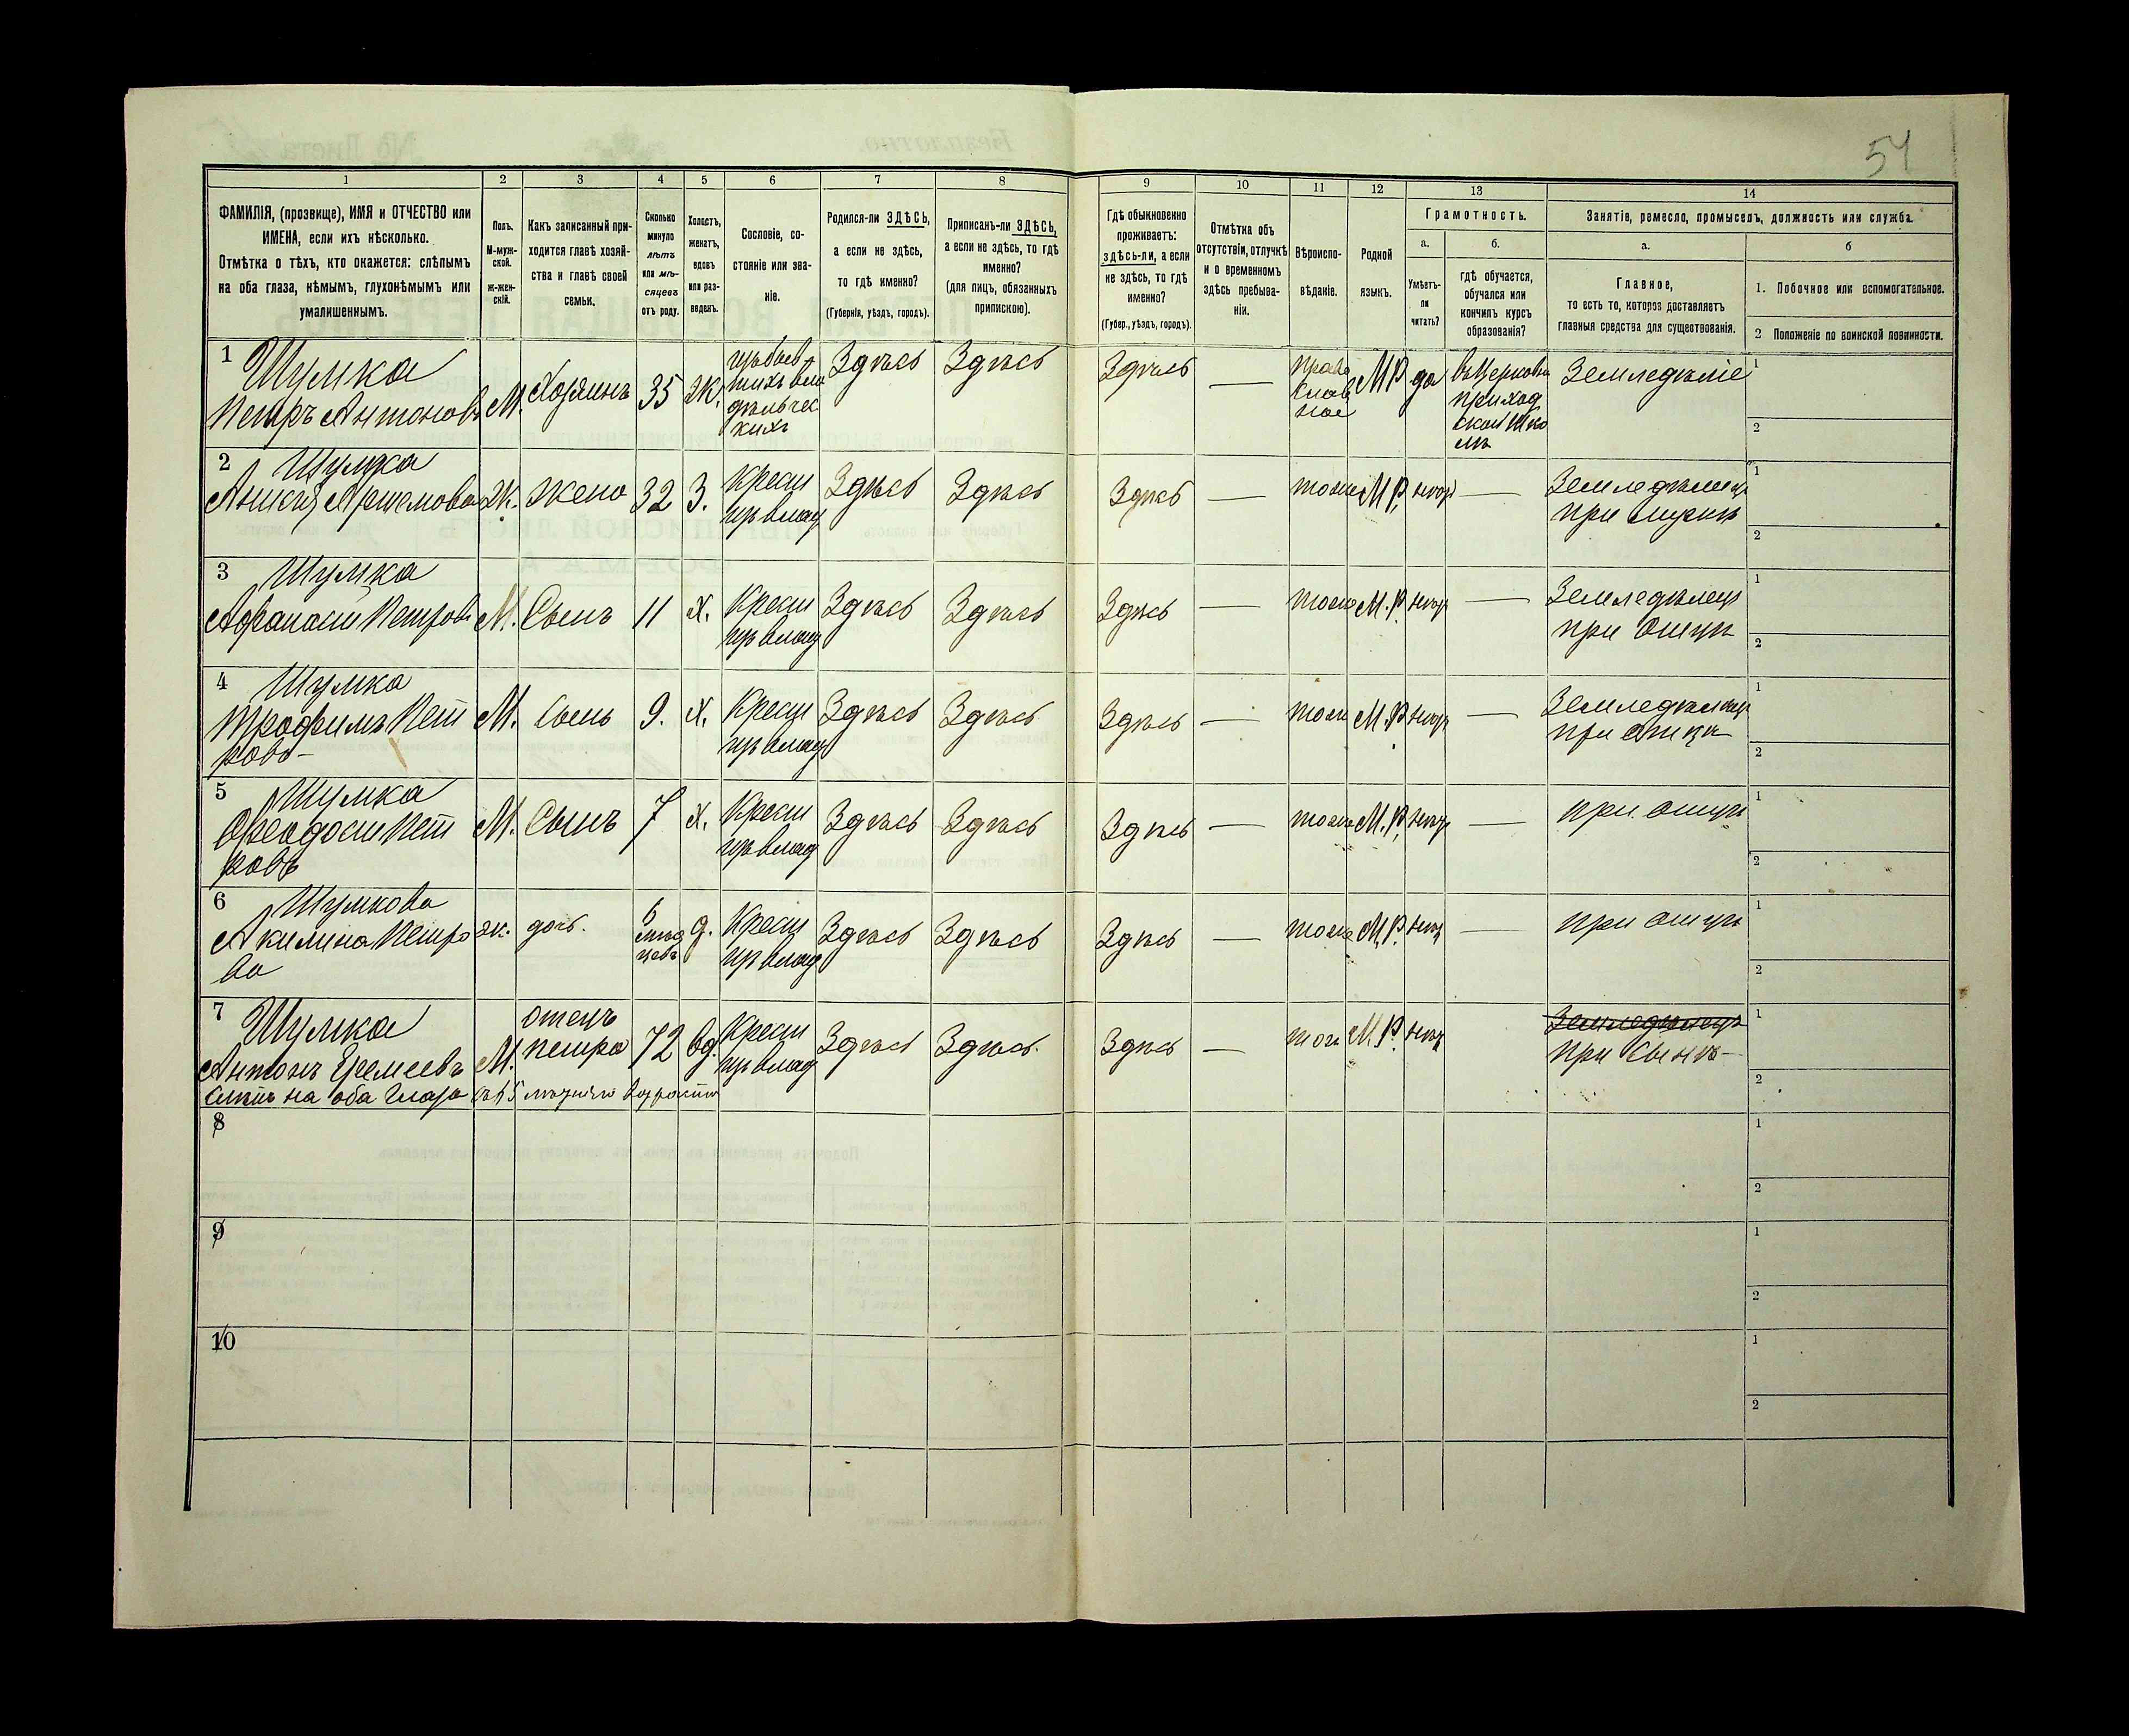 54
1 2 3 4 5 6 7 8 9 10 11 12 13 14
ФАМИЛІЯ, (прозвище), ИМЯ и ОТЧЕСТВО или
ИМЕНА, если ихъ нѣсколько.
Отмѣтка о тѣхъ, кто окажется: слѣпымъ
на оба глаза, нѣмымъ, глухонѣмымъ или
умалишеннымъ.
Полъ.
М-муж-
ской.
ж-жен-
скій.
Какъ записанный при-
ходится главѣ хозяй-
ства и главѣ своей
семьи.
Сколько
минуло
лѣтъ
или мѣ-
сяцевъ
отъ роду.
Холостъ,
женатъ,
вдовъ
или раз-
веденъ.
Сословіе, со-
стояніе или зва-
ніе.
Родился-ли ЗДѢСЬ,
а если не здѣсь,
то гдѣ именно?
(Губернія, уѣздъ, городъ).
Приписанъ-ли ЗДѢСЬ,
а если не здѣсь, то гдѣ
именно?
(для лицъ, обязанныхъ
припиской).
Гдѣ обыкновенно
проживаетъ:
здѣсь-ли, а если
не здѣсь, то гдѣ
именно?
(Губер., уѣздъ, городъ).
Отмѣтка объ
отсутствіи, отлучкѣ
и о временномъ
здѣсь пребыва-
ніи.
Вѣроиспо-
вѣданіе.
Родной
языкъ.
Грамотность.
а.
Умѣетъ-
ли
читать?
б.
гдѣ обучается,
обучался или
кончилъ курсъ
образованія?
Занятіе, ремесло, промыселъ, должность или служба.
а.
Главное,
то есть то, которое доставляетъ
главныя средства для существованія.
б
1. Побочное или вспомогательное.
2 Положеніе по воинской повинности.
1 Шумка
Петръ Антоновъ М. Хозяинъ 35 Ж. Здѣсь Здѣсь Здѣсь — право
слав
ное МР да въ Церковно
приход
ской шко
лѣ Земледѣліе 1
2
2 Шумка
Артемова Ж. жена 32 З. Крест
Здѣсь Здѣсь Здѣсь — тоже М.Р. нѣтъ — Земледѣлецъ
при мужѣ 1
2
3 Шумка
Афанасій Петровъ М. Сынъ 11 Х. Крест
Здѣсь Здѣсь Здѣсь — тоже М.Р. нѣтъ — Земледѣлецъ
при отцѣ 1
2
4 Шумка
Трофимъ Пет
ровъ М. Сынъ 9. Х. Крест
Здѣсь Здѣсь Здѣсь — тоже М.Р. нѣтъ — Земледѣлецъ
при отцѣ 1
2
5 Шумка
Феодосій Пет
ровъ М. Сынъ 7 Х. Крест
Здѣсь Здѣсь Здѣсь — тоже М.Р. нѣтъ — при отцѣ 1
2
6 Шумкова
Акилина Петро
ва ж. дочь. 6
мѣся
цевъ д. Крест
Здѣсь Здѣсь Здѣсь — тоже М.Р. нѣтъ — при отцѣ 1
2
7 Шумка
Антонъ Еремеевъ М. отецъ
Петра 72 вд. Крест
Здѣсь Здѣсь Здѣсь — тоже М.Р. нѣтъ Земледѣлецъ
при сынѣ 1
слѣпъ на оба глаза возраста 2
8 1
2
9 1
2
10 1
2